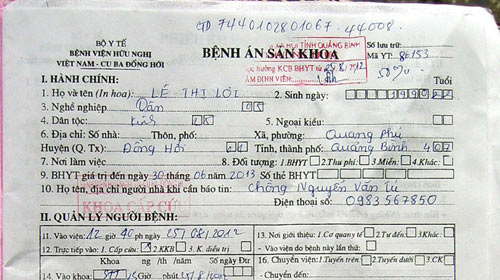 CTD 7440102801067. 44008.
BỘ Y TẾ
BỆNH VIỆN HỮU NGHỊ
VIỆT NAM - CU BA ĐỒNG HỚI
BỆNH ÁN SẢN KHOA
XÃ HỘI TỈNH QUẢNG BÌNH
hưởng KCB BHYT từ
GIÁM ĐỊNH VIÊN:
Số lưu trữ:
Mã YT: 86153
50%
I. HÀNH CHÍNH:
Tuổi
1. Họ và tên (In hoa): LÊ THỊ LỢI
2. Sinh ngày:
3. Nghề nghiệp
4. Dân tộc: Kinh
5. Ngoại kiều:
6. Địa chỉ: Số nhà: Thôn, phố: Xã, phường: Quang Phú
Huyện (Q. Tx) Đồng Hới Tỉnh, thành phố: Quảng Bình
7. Nơi làm việc 8. Đối tượng: 1.BHYT 2.Thu phí: 3.Miễn: 4.Khác:
9. BHYT giá trị đến ngày 30 tháng 06 năm 2013 Số thẻ BHYT
10. Họ tên, địa chỉ người nhà khi cần báo tin: Chồng Nguyễn Văn Tú
Điện thoại số: 0983567850
KHOA CẤP CỨU
II. QUẢN LÝ NGƯỜI BỆNH:
11. Vào viện: 12 giờ 40 ph ngày 25/08/2012
12. Trực tiếp vào: 1. Cấp cứu 2.KKB 3. K. điều trị
13. Nơi giới thiệu: 1.Cơ quan y tế 2.Tự đến 3.Khác:
- Vào viện do bệnh này lần thứ:
Khoa ng /th /năm Số ngày Đtr
14. Vào khoa
16. Chuyển viện: 1.Tuyến trên 2.Tuyến dưới 3.CK
- Chuyển đến: